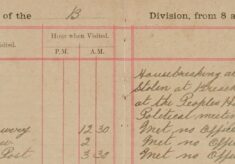 of the B Division, from 8 a
Hour when Visited.
isited. P.M. A.M.
Housebreaking a
Stolen at
at the Peoples H
Political meet
12 30 met no Offic
2 met no
Post 3 30 met no Offic